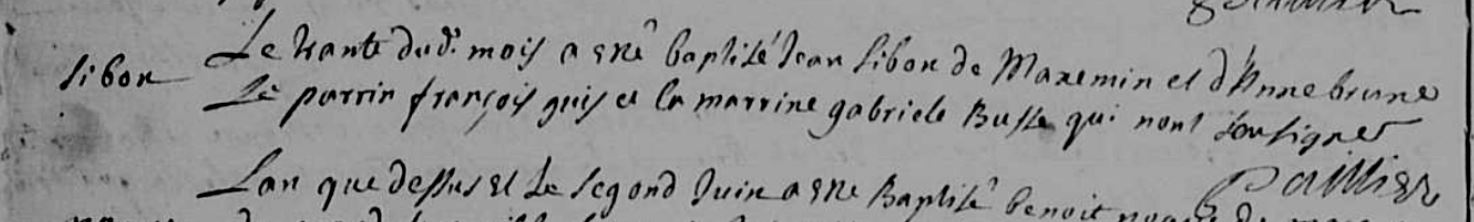 Sibon
Le trante dud. mois a esté baptisé Jean Sibon de Maxemin et d'Anne brune
Le parrin françois guis et la marrine gabriele Busse qui nont sceu signer
Paillier
Lan que dessus et le segond Juin a esté Baptisé benoit